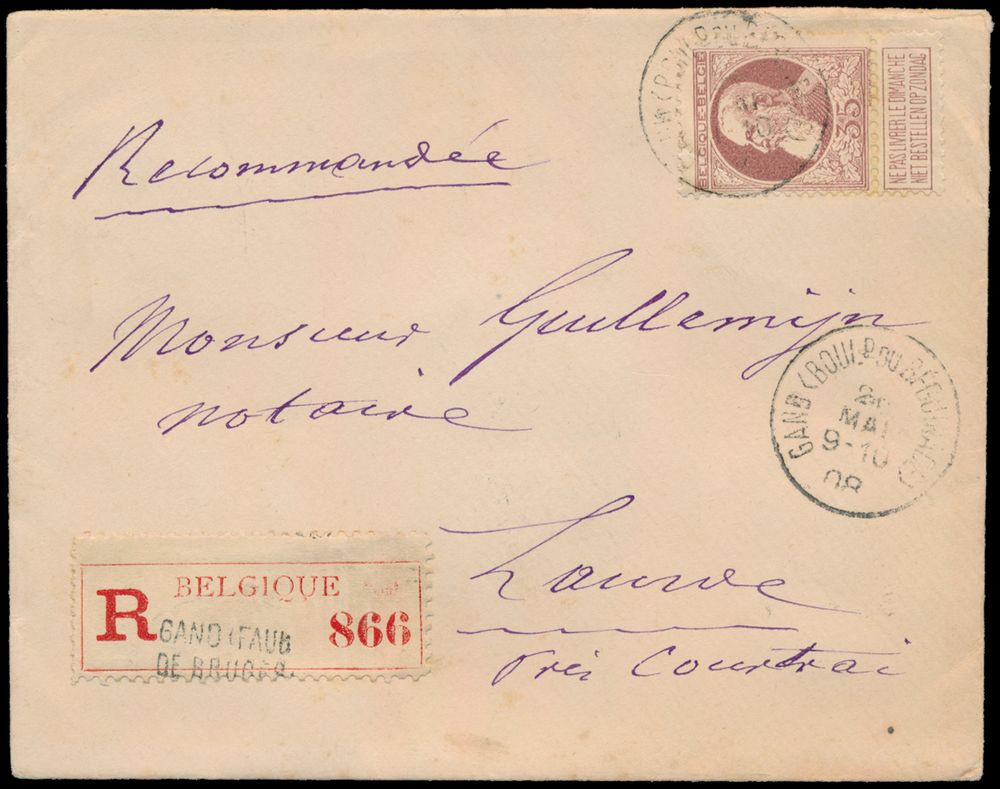 BELGIQUE-BELGIE
35
NE PAS LIVRER LE DIMANCHE
NIET BESTELLEN OP ZONDAG
Recommandée
Monsieur Guillemijn
notaire
GAND (BOULD DU BÉGUINAGE)
MAI
9-10
08
Lauwe
près Courtrai
BELGIQUE
R
866
GAND (FAUB
DE BRUGES